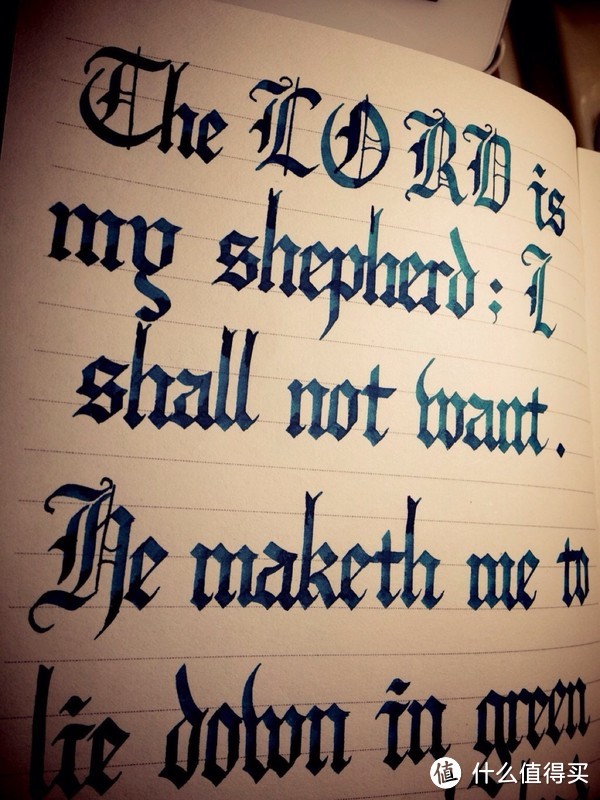 The LORD is
my shepherd: I
shall not want.
He maketh me to
lie down in green
值 什么值得买